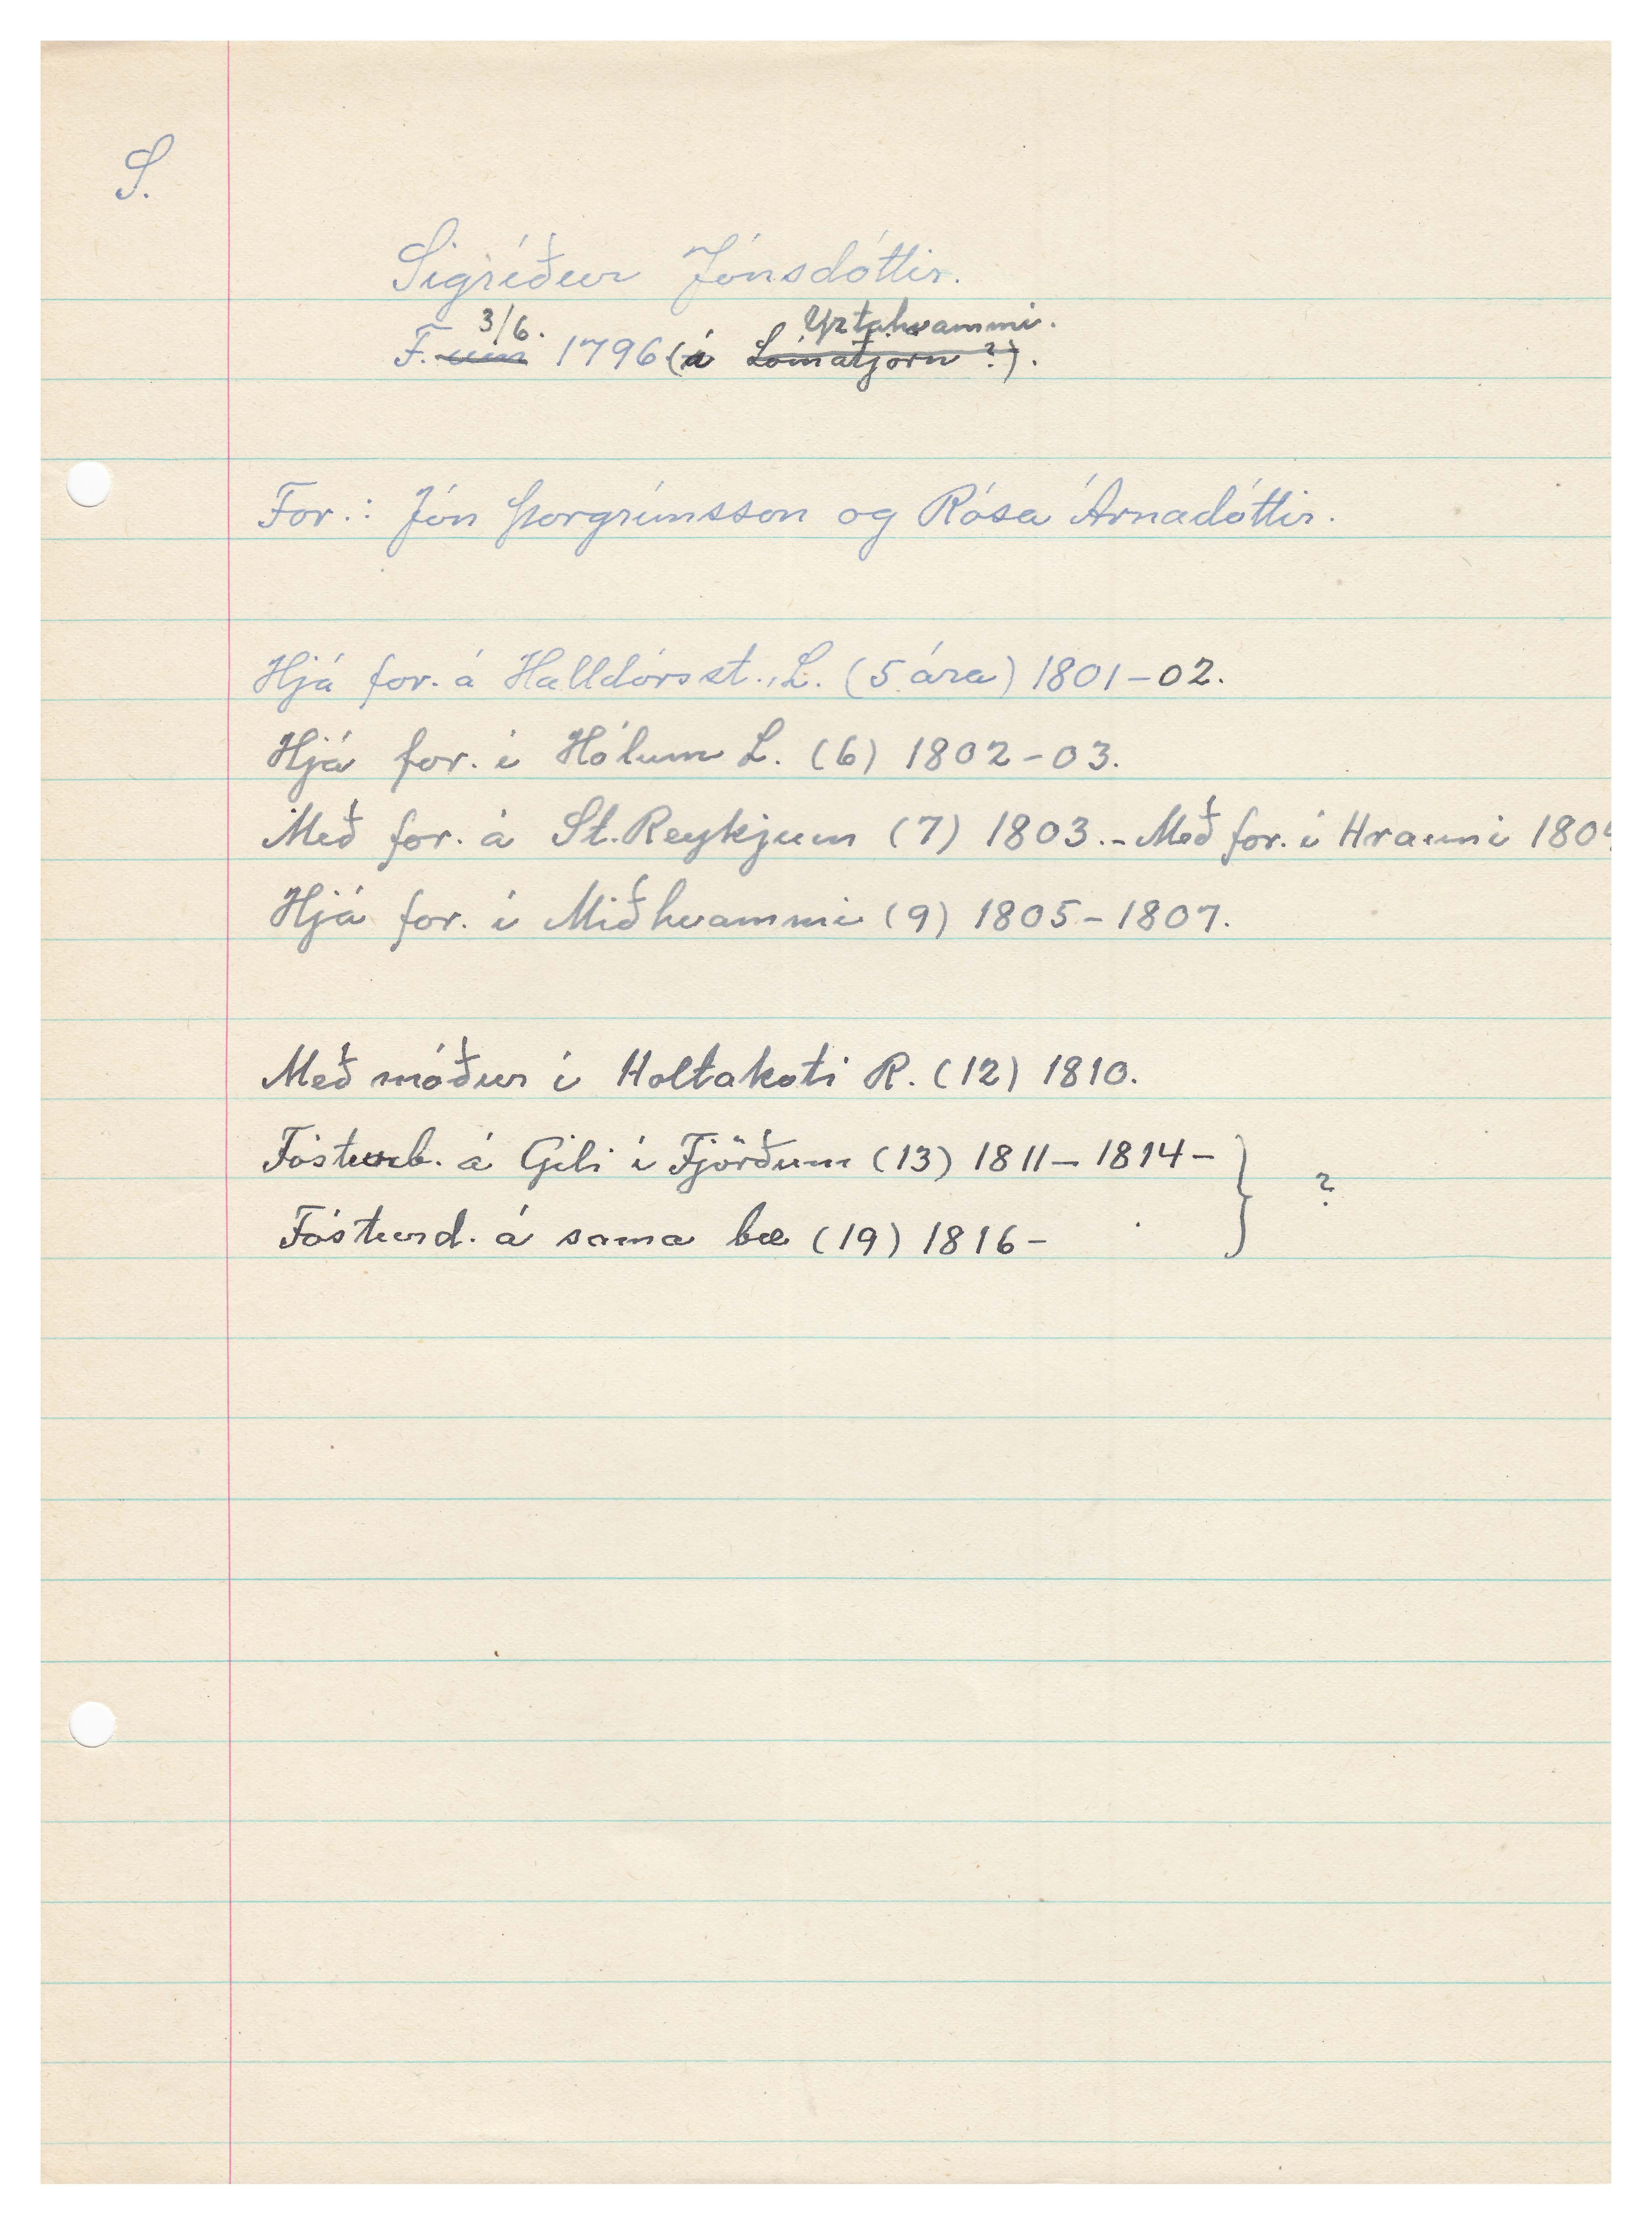 S.
Sigríður Jónsdóttir.
3/6. Yztahvammi.
F. um 1796 (á Lómatjörn ?).
For.: Jón Þorgrímsson og Rósa Árnadóttir.
Hjá for. á Halldórsst., L. (5 ára) 1801-02.
Hjá for. í Hólum L. (6) 1802-03.
Með for. á St.Reykjum (7) 1803.- Með for. í Hrauni 1804
Hjá for. í Miðhvammi (9) 1805-1807.
Með móður í Holtakoti R. (12) 1810.
Fósturb. á Gili í Fjörðum (13) 1811- 1814- } ?
Fósturd. á sama bæ (19) 1816-